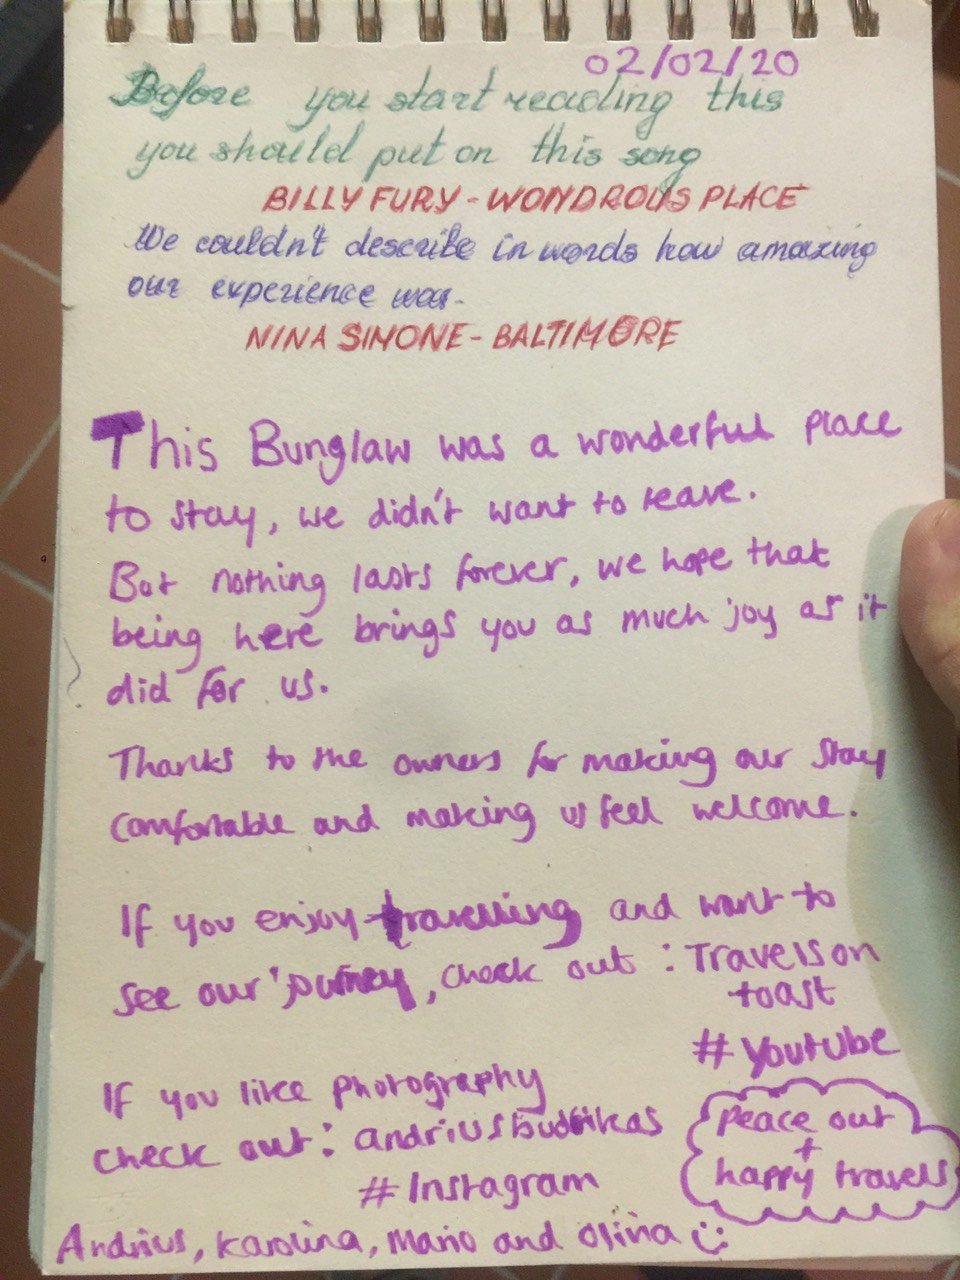 02/02/20
Before you start reading this
you should put on this song
BILLY FURY - WONDROUS PLACE
We couldn't describe in words how amazing
our experience was.
NINA SIMONE - BALTIMORE
This Bunglaw was a wonderful place
to stay, we didn't want to leave.
But nothing lasts forever, we hope that
being here brings you as much joy as it
did for us.
Thanks to the owners for making our stay
comfortable and making us feel welcome.
If you enjoy travelling and want to
see our journey, check out : Travels on
toast
# Youtube
If you like photography
check out :
# Instagram
Peace out
+
happy travels
Andrius, Karolina, Mario and Olina :)